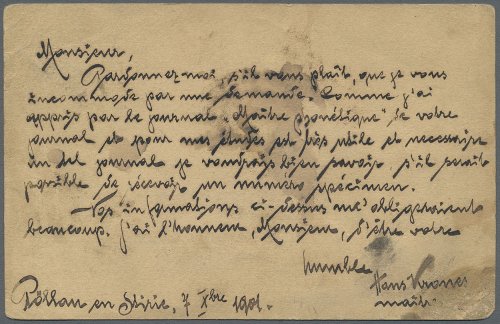 Monsieur,
Pardonnez-moi, s'il vous plaît, que je vous
incommode par une demande. Comme j'ai
appris par le journal "Maître phonétique" de votre
journal et pour mes études est très utile et nécessaire
un tel journal je voudrais bien savoir, s'il serait
possible de recevoir un numero spécimen.
Vos informations ci-dessus m'obligeraient
beaucoup. J'ai l'honneur, Monsieur, d'être votre
humble
Hans Krones
Pöllau en Stirie, 7 Xbre 1901.